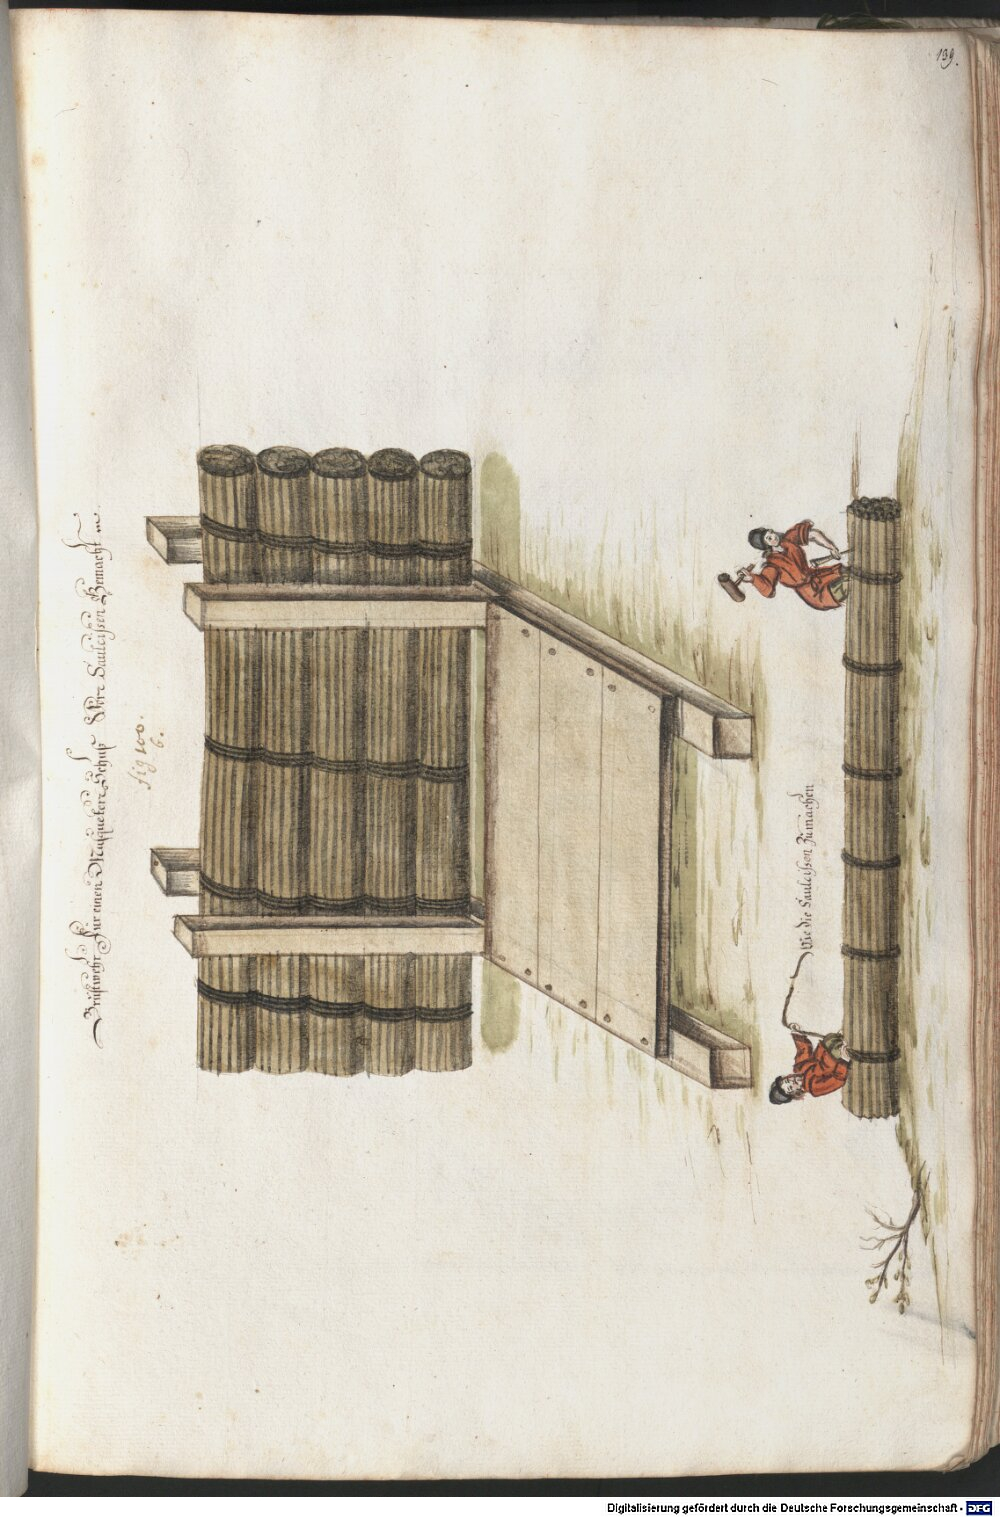 139.
Brustwehr Für einen Musqueten Schuß Von Saulcissen Gemacht
fig 100.
6.
Wie die Saulcissen Zumachen
Digitalisierung gefördert durch die Deutsche Forschungsgemeinschaft - DFG